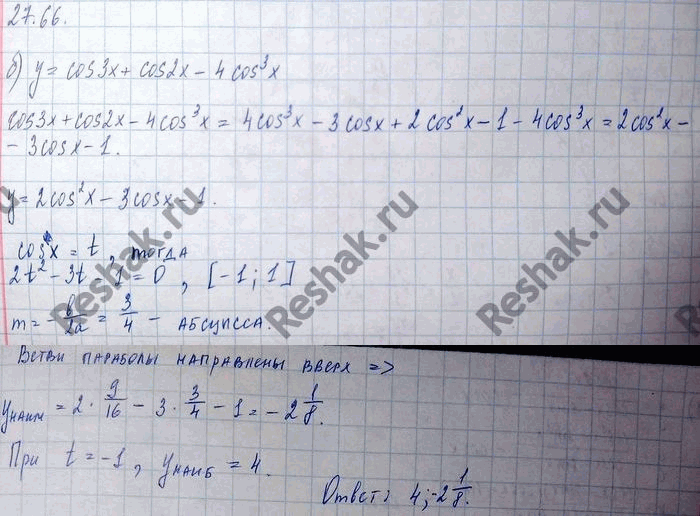 27.66.
б) y = cos3x + cos2x - 4cos³x
cos3x + cos2x - 4cos³x = 4cos³x - 3cosx + 2cos²x - 1 - 4cos³x = 2cos²x -
- 3cosx - 1.
y = 2cos²x - 3cosx - 1.
cosx = t, тогда
2t² - 3t - 1 = 0, [-1; 1]
m = -b/2a = 3/4 - абсцисса.
Ветви параболы направлены вверх =>
yнаим = 2 · 9/16 - 3 · 3/4 - 1 = -2 1/8.
При t = -1, yнаиб = 4.
Ответ: 4; -2 1/8.
Reshak.ru
Reshak.ru
Reshak.ru